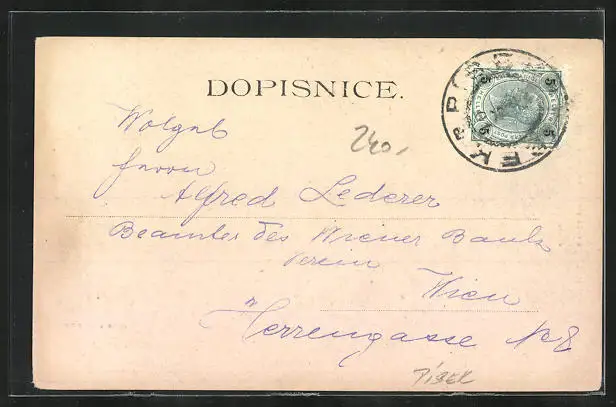 DOPISNICE.
240,-
Wolgeb
Herrn
Alfred Lederer
Beamter des Wiener Bank
Verein
Wien
Herrengasse No 8
5 5
5 5